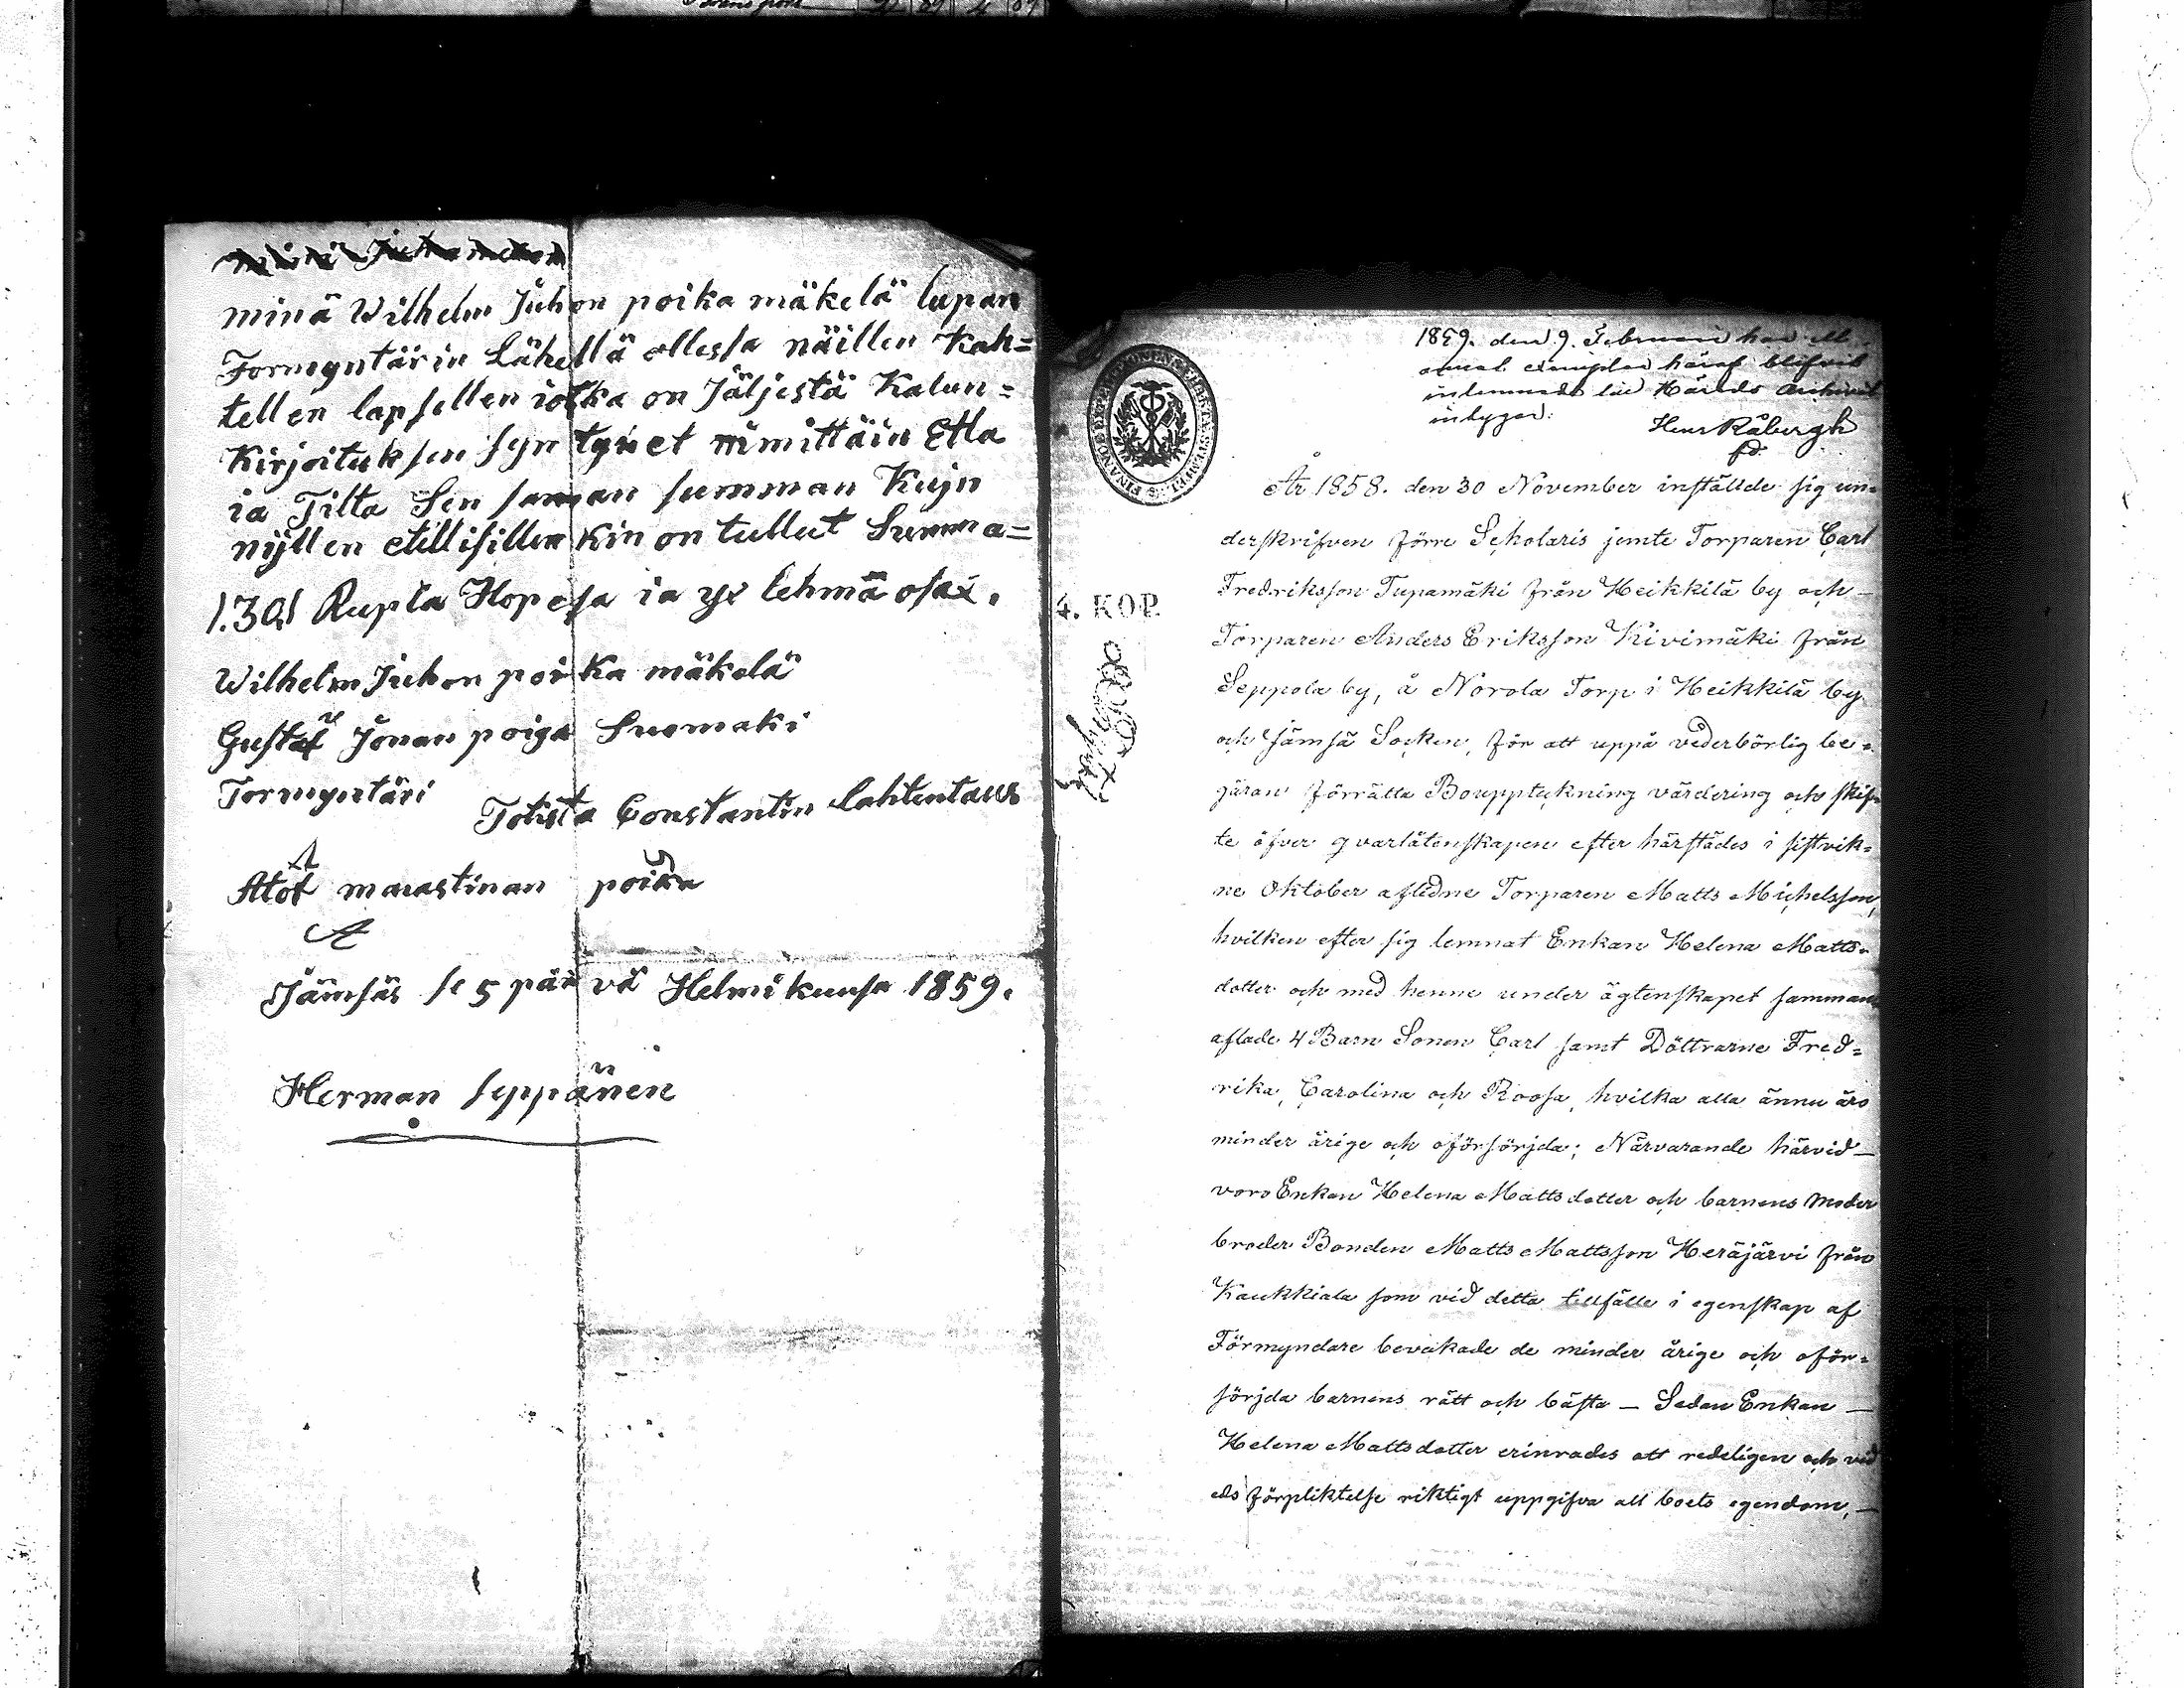 minä Wilhelm Juhon poika mäkelä lupan
Formyntärin Lähellä ollessa näillen Kah=
tellen lapsellen iotka on Jäljestä Kalun=
Kirjoituksen syntynet nimittäin Etla
ia Tilta Sen saman summan Kujn
nijllen etellisillen kin on tullut Summa=
1.30 Rupla Hopesa ia yx lehmä osax.
Wilhelm Juhon poika mäkelä
Gustaf Jonan poiga Suomaki
Formyntäri
Totista Constantin Lahtentaus
Atof maiastinan poika
Jämsäs se 5 päivä Helmikuusa 1859.
Herman seppänen
1859. den 9. Februari har ett
annat exemplar häraf blifvit
inlemnadt till Härads Archivet
intygar:
Henr Råbergh
4. KOP.
År 1858. den 30 November inställde sig un=
derskrifven Förre Scholaris jemte Torparen Carl
Fredriksson Tupamäki från Heikkilä by och –
Torparen Anders Eriksson Kivimäki från
Seppola by, å Norola Torp i Heikkilä by
och Jämsä Socken, för att uppå vederbörlig be=
gäran förrätta Bouppteckning värdering och skif=
te öfver qvarlåtenskapen efter härstädes i sistvik=
ne Oktober aflidne Torparen Matts Michelsson,
hvilken efter sig lemnat Enkan Helena Matts=
dotter och med henne under ägtenskapet samman
aflade 4 Barn Sonen Carl samt Döttrarne Fred=
rika, Carolina och Roosa, hvilka alla ännu äro
minder årige och oförsörjda; Närvarande härvid –
voro Enkan Helena Mattsdotter och barnens Moder
broder Bonden Matts Mattsson Heräjärvi från
Kaukkiala som vid detta tillfälle i egenskap af
Förmyndare bevakade de minder årige och oför=
sörjda barnens rätt och bästa – Sedan Enkan –
Helena Mattsdotter erinrades att redeligen och vid
eds förpliktelse riktigt uppgifva all boets egendom, –